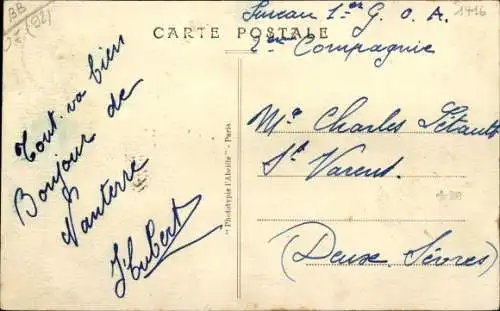 BB
(92)
1416
CARTE POSTALE
1er G. O. A.
2eme Compagnie
Tout va bien
Bonjour de
Nanterre
Hubert
"Phototypie l'Abeille" - Paris
Mr Charles Létault
St Varent
(Deux. Sèvres)